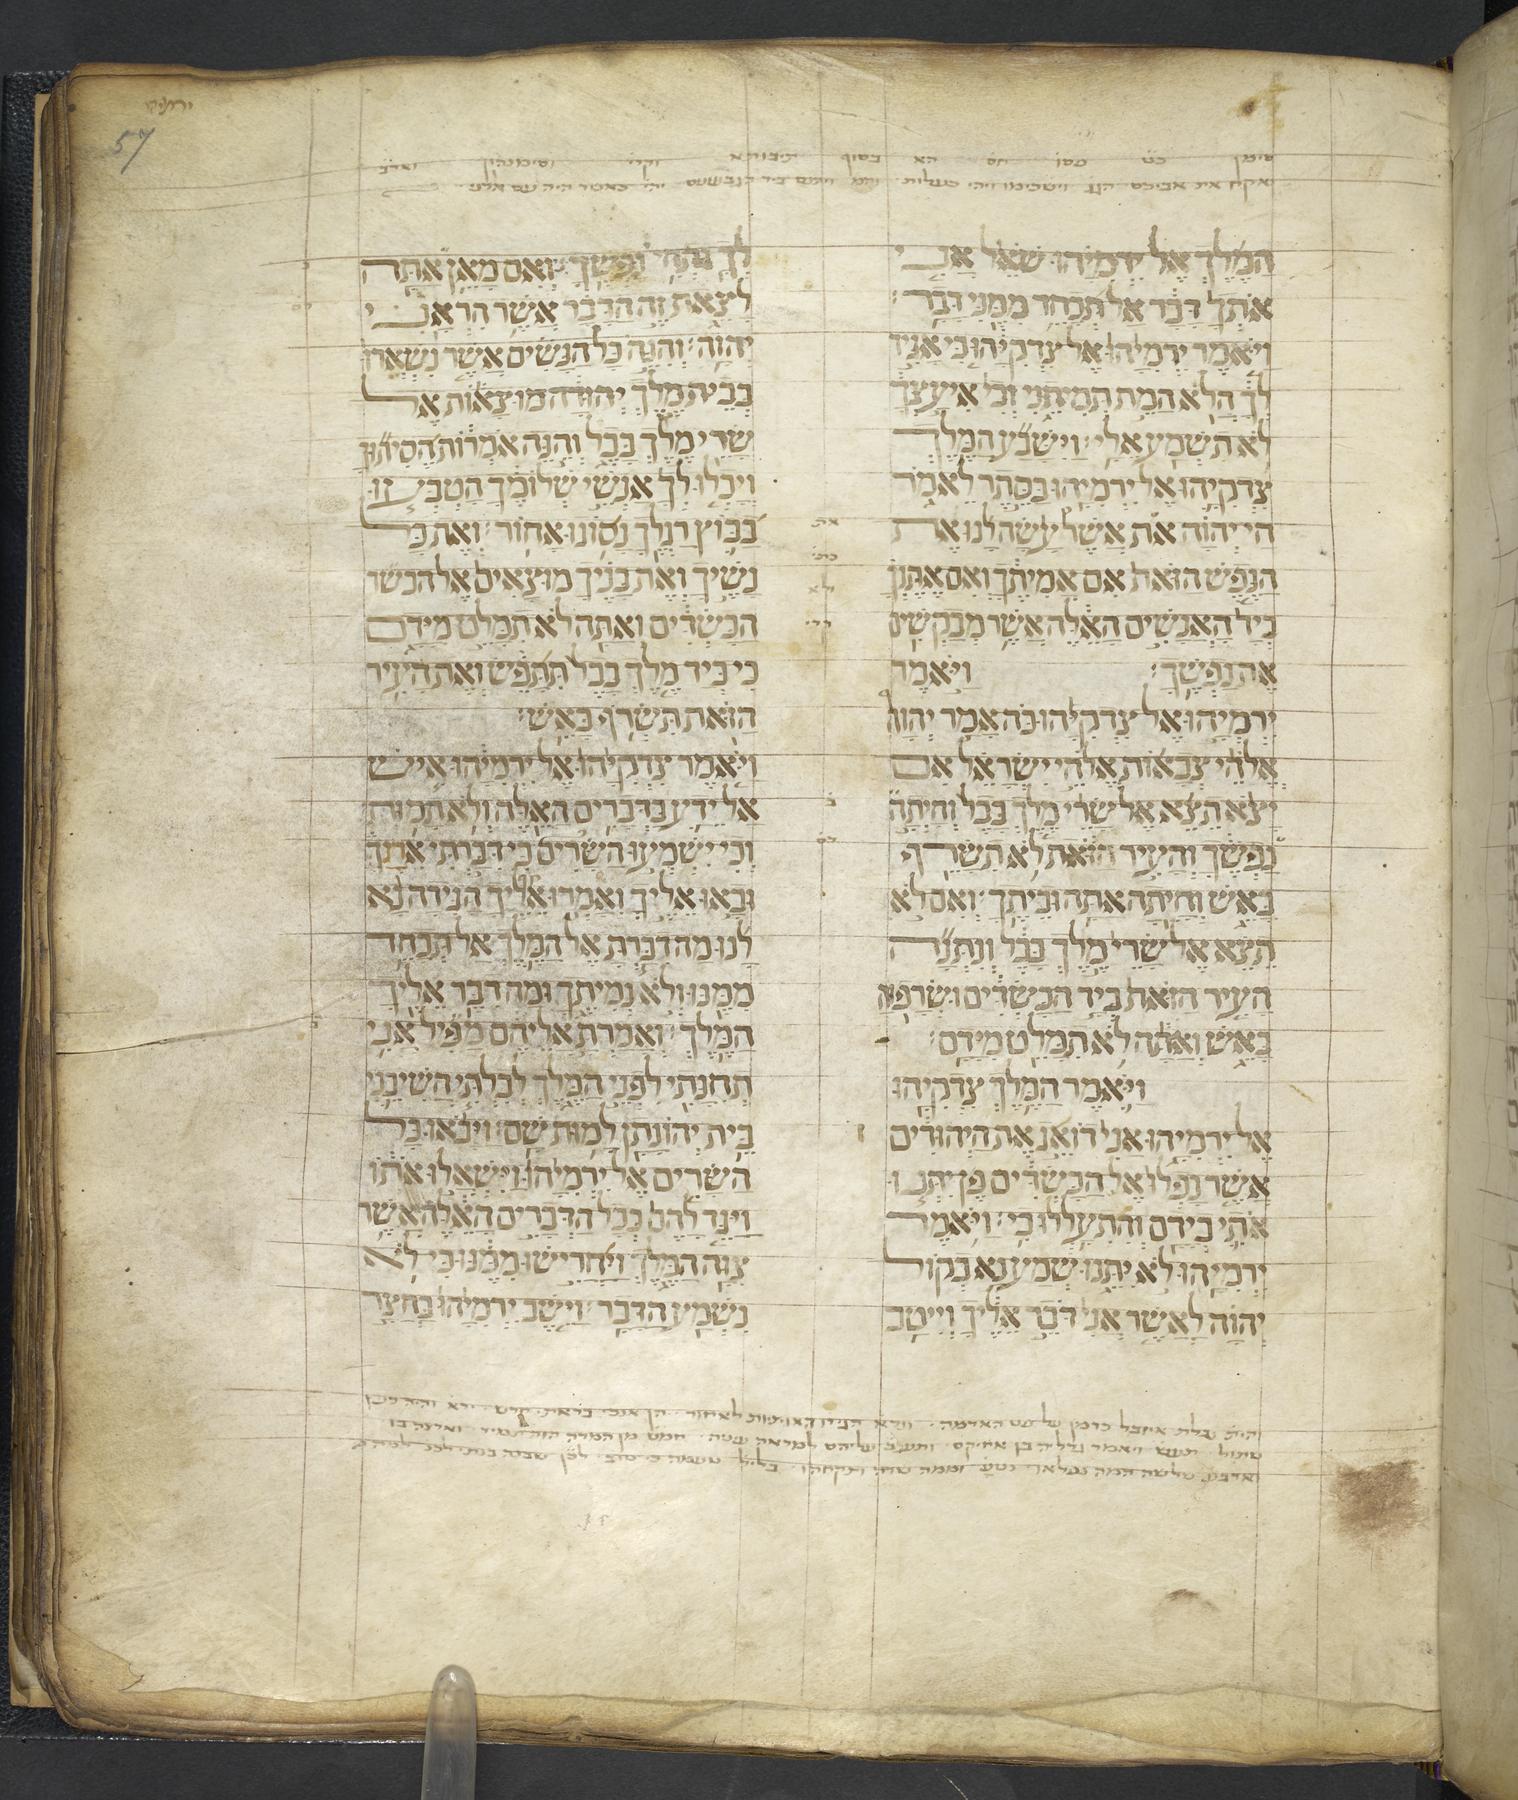 ירמיה
57
המלך אל ירמיהו שאל אני
אתך דבר אל תכחד ממני דבר׃
ויאמר ירמיהו אל צדקיהו כי אגיד
לך הלא המת תמיתני וכי איעצך
לא תשמע אלי׃ וישבע המלך
צדקיהו אל ירמיהו בסתר לאמר
חי יהוה את אשר עשה לנו את
הנפש הזאת אם אמיתך ואם אתנך
ביד האנשים האלה אשר מבקשים
את נפשך׃ ויאמר
ירמיהו אל צדקיהו כה אמר יהוה
אלהי צבאות אלהי ישראל אם
יצא תצא אל שרי מלך בבל וחיתה
נפשך והעיר הזאת לא תשרף
באש וחיתה אתה וביתך׃ ואם לא
תצא אל שרי מלך בבל ונתנה
העיר הזאת ביד הכשדים ושרפוה
באש ואתה לא תמלט מידם׃
ויאמר המלך צדקיהו
אל ירמיהו אני דואג את היהודים
אשר נפלו אל הכשדים פן יתנו
אתי בידם והתעללו בי׃ ויאמר
ירמיהו לא יתנו שמע נא בקול
יהוה לאשר אני דבר אליך וייטב
לך ותחי נפשך׃ ואם מאן אתה
לצאת זה הדבר אשר הראני
יהוה׃ והנה כל הנשים אשר נשארו
בבית מלך יהודה מוצאות אל
שרי מלך בבל והנה אמרות הסיתוך
ויכלו לך אנשי שלומך הטבעו
בבוץ רגלך נסוגו אחור׃ ואת כל
נשיך ואת בניך מוצאים אל הכשד
הכשדים ואתה לא תמלט מידם
כי ביד מלך בבל תתפש ואת העיר
הזאת תשרף באש׃
ויאמר צדקיהו אל ירמיהו איש
אל ידע בדברים האלה ולא תמות
וכי ישמעו השרים כי דברתי אתך
ובאו אליך ואמרו אליך הגידה נא
לנו מה דברת אל המלך אל תכחד
ממנו ולא נמיתך ומה דבר אליך
המלך׃ ואמרת אליהם מפיל אני
תחנתי לפני המלך לבלתי השיבני
בית יהונתן למות שם׃ ויבאו כל
השרים אל ירמיהו וישאלו אתו
ויגד להם ככל הדברים האלה אשר
צוה המלך ויחרישו ממנו כי לא
נשמע הדבר׃ וישב ירמיהו בחצר